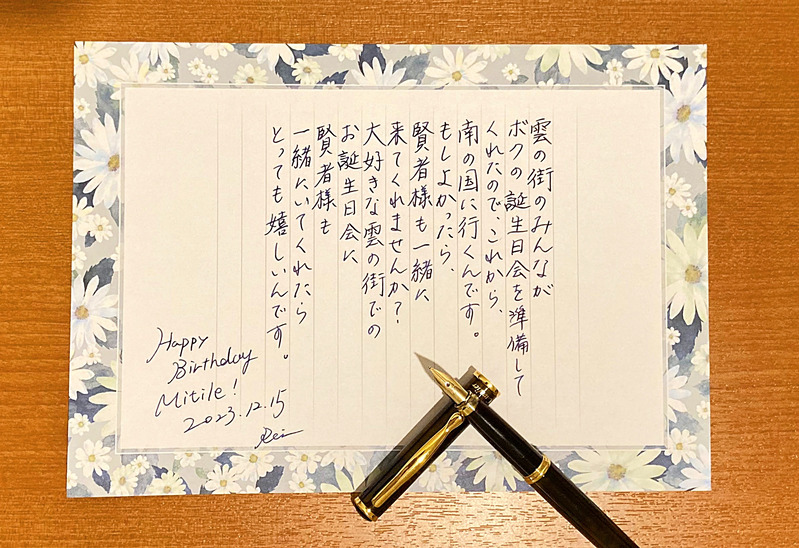 雲の街のみんなが
ボクの誕生日会を準備して
くれたので、これから、
南の国に行くんです。
もしよかったら、
賢者様も一緒に
来てくれませんか?
大好きな雲の街での
お誕生日会に
賢者様も
一緒にいてくれたら
とっても嬉しいんです。
Happy
Birthday
Mitile!
2023.12.15
Rei